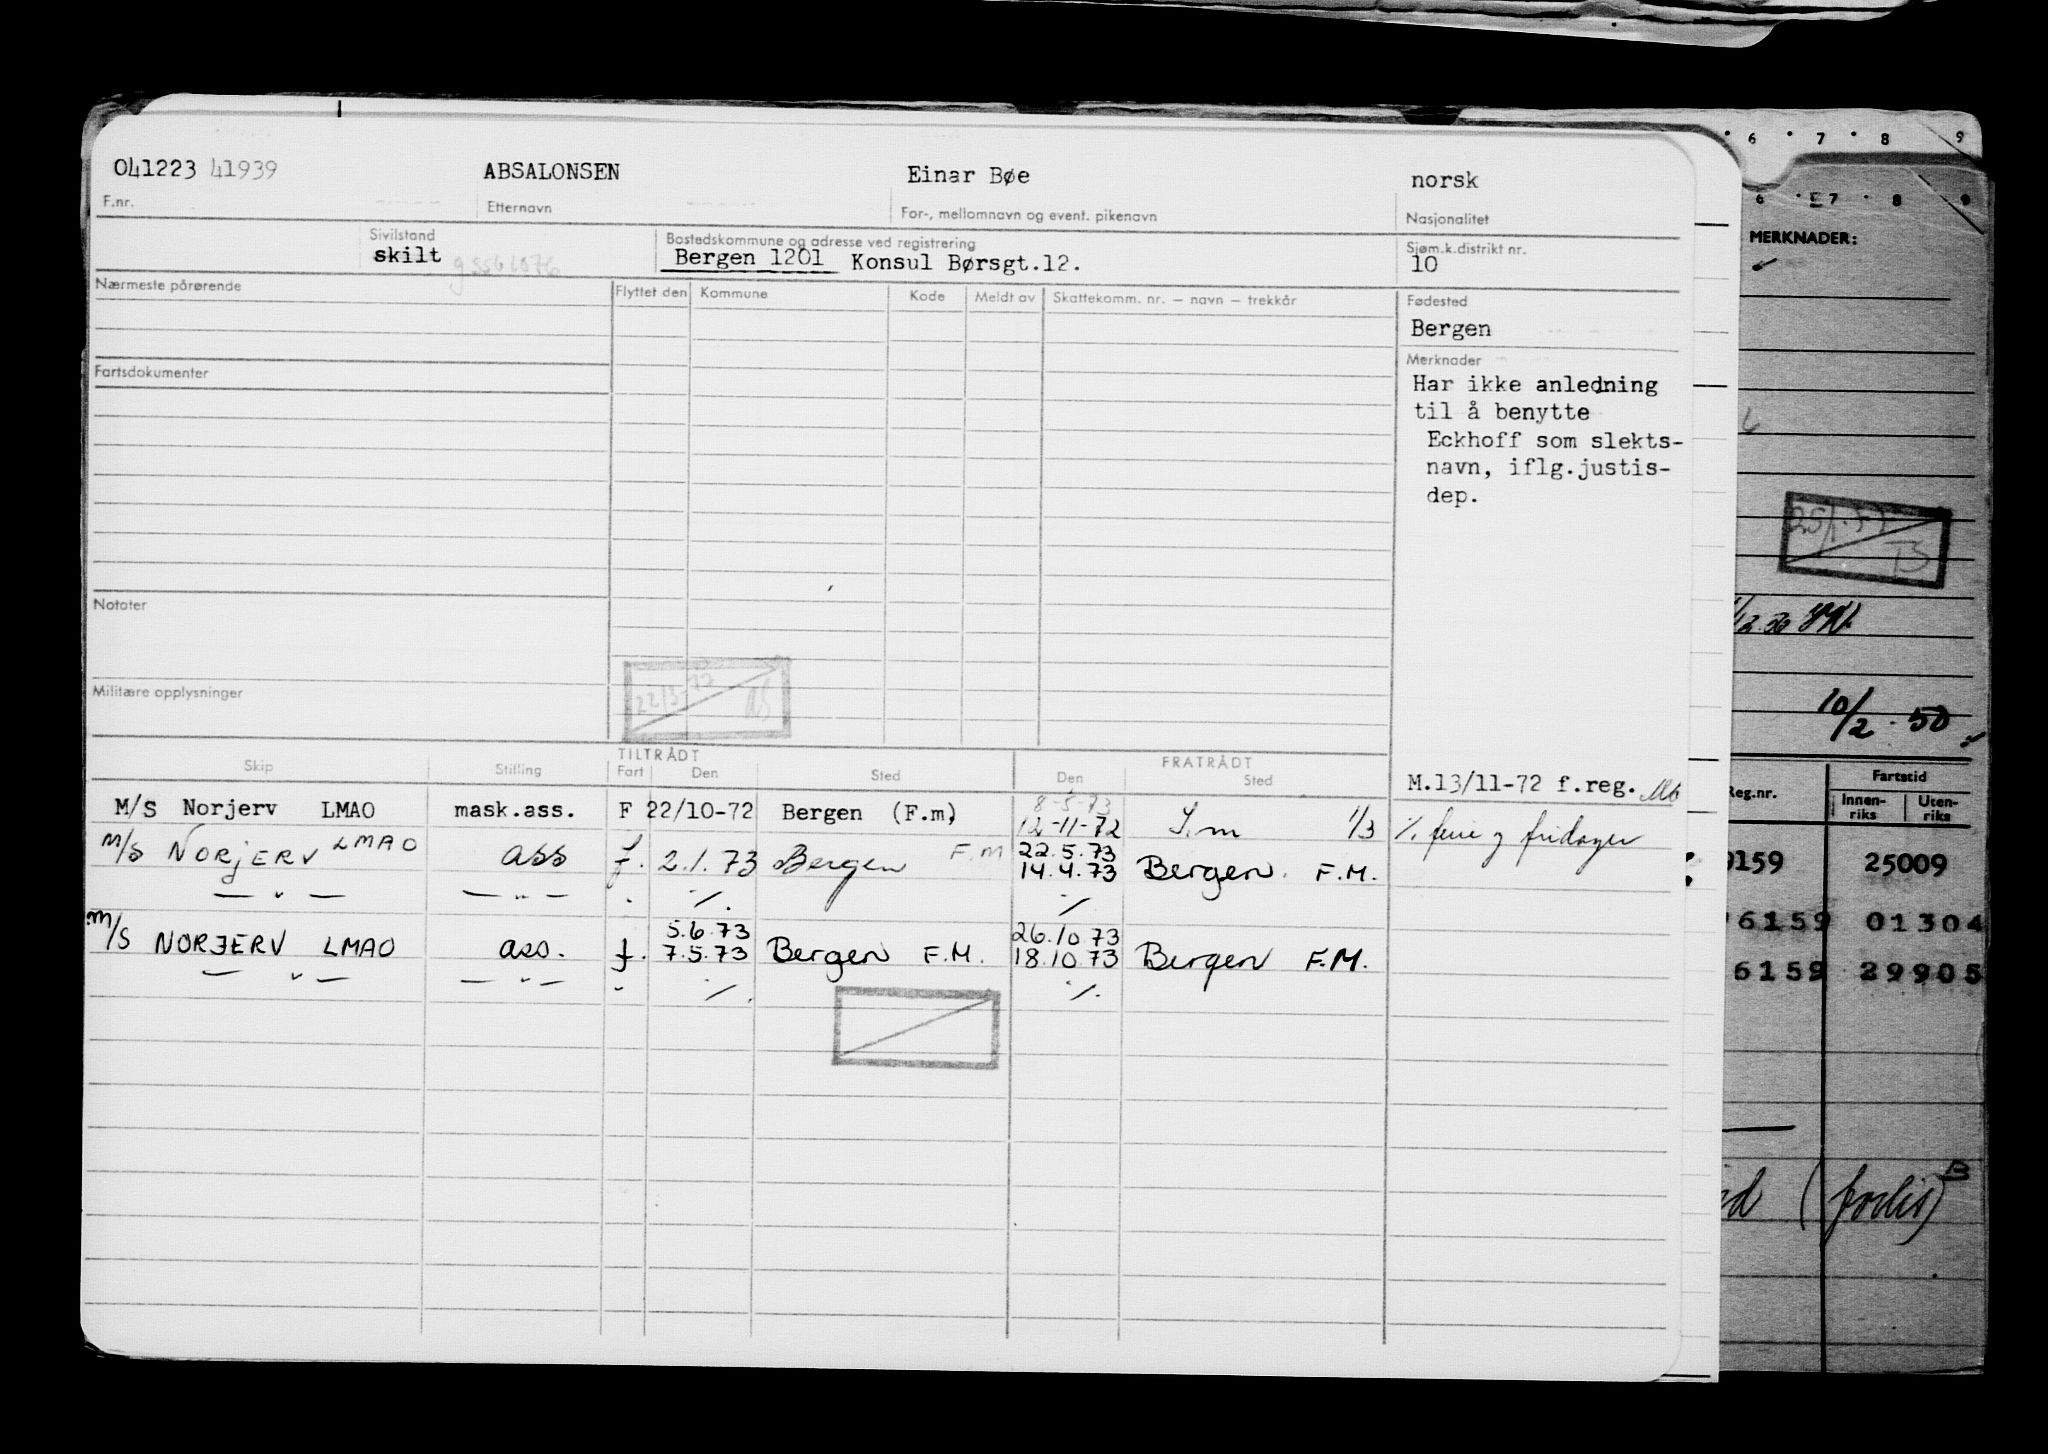 041223 41939 ABSALONSEN Einar Bøe norsk
F.nr. Etternavn For-, mellomnavn og event. pikenavn Nasjonalitet
Sivilstand Bostedskommune og adresse ved registrering Sjøm.k.distrikt nr.
skilt Bergen 1201 Konsul Børsgt.12. 10
Nærmeste pårørende Flyttet den Kommune Kode Meldt av Skattekomm. nr. — navn — trekkår Fødested
Bergen
Fartsdokumenter Merknader
Har ikke anledning
til å benytte
Eckhoff som slekts-
navn, iflg.justis-
dep.
Notater
Militære opplysninger
TILTRÅDT FRATRÅDT
Skip Stilling Fart Den Sted Den Sted
M.13/11-72 f.reg.
8-5-73
M/S Norjerv LMAO mask.ass. F 22/10-72 Bergen (F.m) 12-11-72 1/3 % ferie og fridager
22.5.73
M/S NORJERV LMAO ass f. 2.1.73 Bergen F.M 14.4.73 Bergen. F.M.
— " — — " — %. %
5.6.73 26.10 73
M/S NORJERV LMAO ass. f. 7.5.73 Bergen F.M. 18.10.73 Bergen F.M.
— " — — " — %. %.
6 7 8 9
6 7 8 9
MERKNADER:
10/2 · 50
Reg.nr. Fartstid
Innen-
riks
Uten-
riks
159 25009
6159 01304
6159 29905